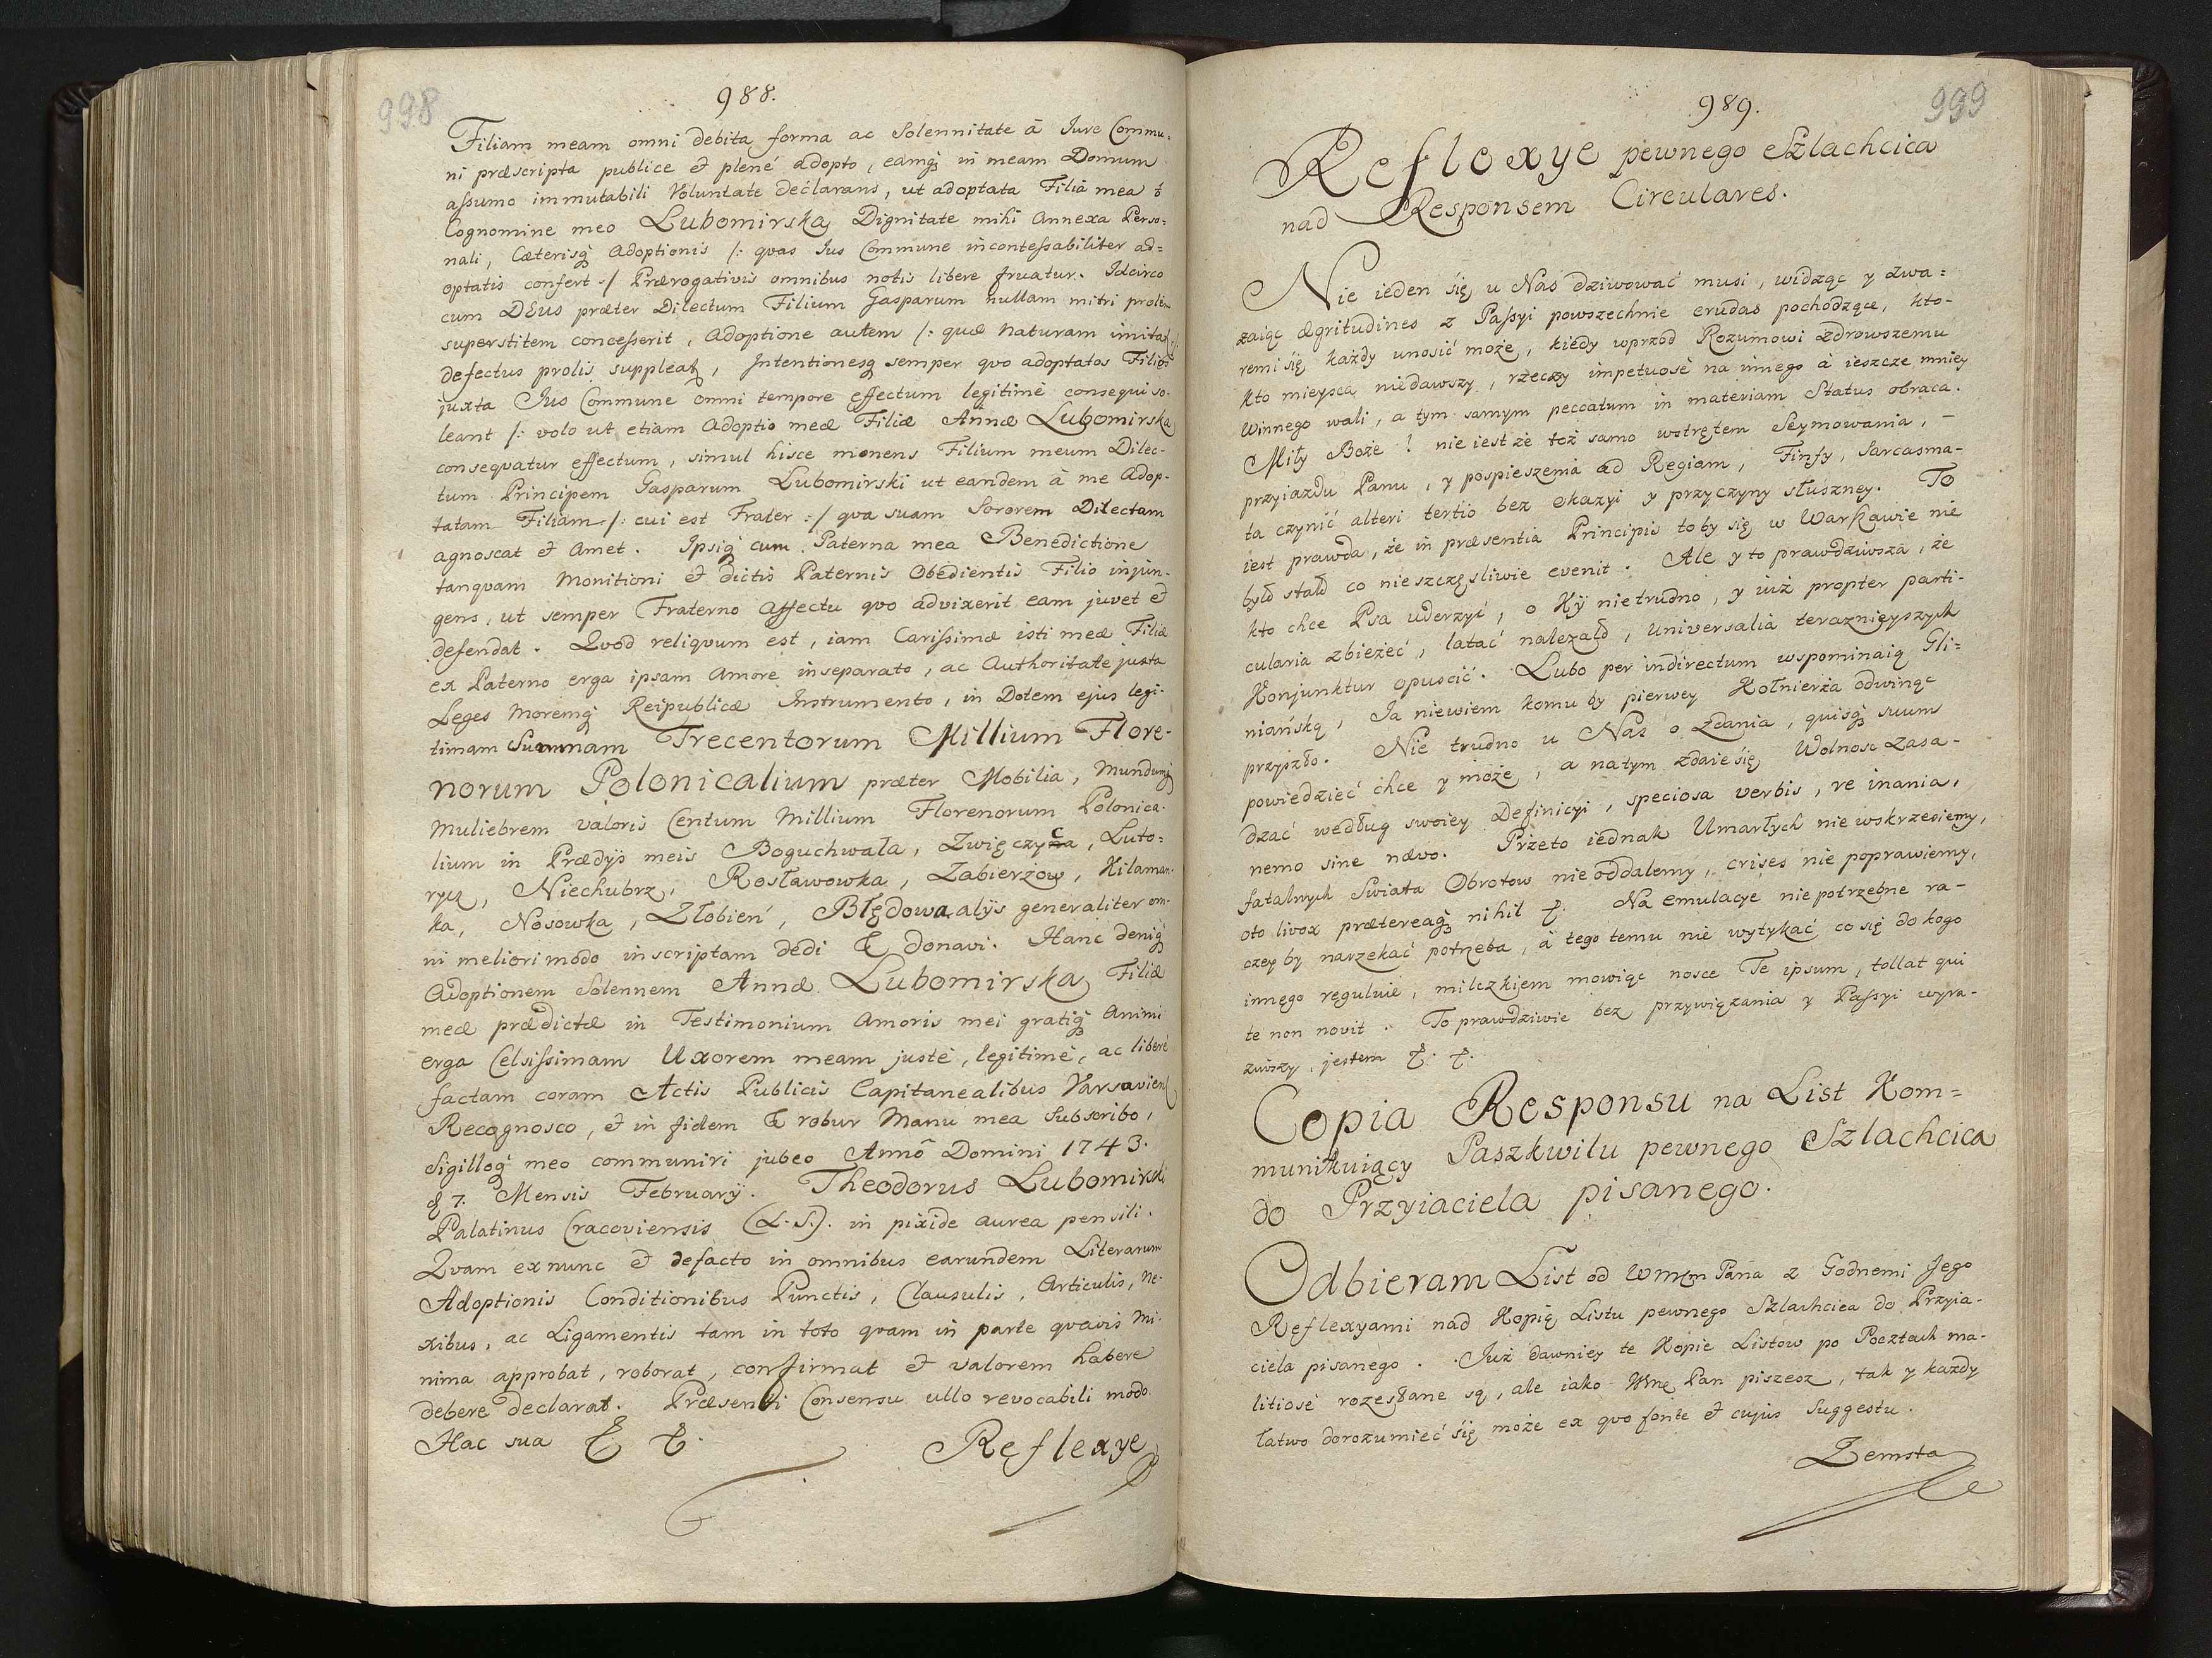 998
988.
Filiam meam omni debita forma ac Solennitate â Jure Commu-
ni præscripta publice et plené adopto, eamq3 in meam Domum
assumo immutabili Voluntate declarans, ut adoptata Filia mea
Cognomine meo Lubomirska, Dignitate mihi Annexa Perso-
nali, Cæterisq3 Adoptionis /: qvas Jus Commune incontessabiliter ad=
optatis confert :/ Prærogativis omnibus notis libere fruatur. Idcirco
cum DEus præter Dilectum Filium Gasparum nullam mihi prolem
superstitem concesserit, Adoptione autem /: quæ Naturam imitat :/
defectus prolis suppleat, Intentionesq3 semper qvo adoptatos Filios
juxta Jus Commune omni tempore effectum legitimè consequi so-
leant /: volo ut etiam Adoptio meæ Filiæ Annæ Lubomirska
consequatur effectum, simul hisce monens Filium meum Dilec-
tum Principem Gasparum Lubomirski ut eandem â me Adop-
tatam Filiam /: cui est Frater :/ qva suam Sororem Dilectam
agnoscat et Amet. Ipsiq3 cum Paterna mea Benedictione
tanqvam Monitioni et dictis Paternis Obedientis Filio injun-
gens, ut semper Fraterno Affectu qvo advixerit eam juvet et
defendat. Qvod reliqvum est, iam Carissimæ isti meæ Filiæ
ex Paterno erga ipsam Amore inseparato, ac Authoritate juxta
Leges Moremq3 Reipublicæ Instrumento, in Dotem ejus legi-
timam Summam Trecentorum Millium Flore-
norum Polonicalium præter Mobilia, Mundumq3
Muliebrem valoris Centum Millium Florenorum Polonica-
lium in Prædijs meis Boguchwała, Zwięczyca, Luto=
ryż, Niechubrz, Rosławowka, Zabierżow, Kilaman-
ka, Nosowka, Złobień, Błędowa alÿs generaliter om-
ni meliori modo inscriptam dedi & donavi. Hanc deniq3
Adoptionem Solennem Annæ Lubomirska Filiæ
meæ prædictæ in Testimonium Amoris mei gratiq3 Animi
erga Celsissimam Uxorem meam justè, legitimè, ac liberè
factam coram Actis Publicis Capitanealibus Varsavien
Recognosco, et in fidem & robur Manu mea Subscribo,
Sigilloq3 meo communiri jubeo Annō Domini 1743.
d 7. Mensis Februarÿ. Theodorus Lubomirski
Palatinus Cracoviensis (L.S.). in pixide aurea pensili.
Qvam ex nunc et defacto in omnibus earundem Literarum
Adoptionis Conditionibus Punctis, Clausulis, Articulis, Ne-
xibus, ac Ligamentis tam in toto qvam in parte qvavis Mi-
nima approbat, roborat, confirmat et valorem habere
debere declarat. Præsenti Consensu ullo revocabili modo.
Hac sua & &.
Reflexye
999
989.
Reflexye pewnego Szlachcica
nad Responsem Circulares.
Nie ieden się u Nas dziwować musi, widząc y zwa=
zaiąc ægritudines z Passyi powszechnie crudas pochodzące, kto-
remi się każdy unosić może, kiedy wprzod Rozumowi zdrowszemu
kto mieysca niedawszy, rzeczy impetuosè na innego à ieszcze mniey
Winnego wali, a tym samym peccatum in materiam Status obraca.
Miły Boże! nie iest że toż samo wstrętem Seymowania, –
przyiazdu Panu, y pospieszenia ad Regiam, Finfy, Sarcasma-
ta czynić alteri tertio bez okazyi y przyczyny słuszney. To
iest prawda, że in præsentia Principis to by się w Warszawie nie
było stało co nieszczęsliwie evenit. Ale y to prawdziwsza, że
kto chce Psa uderzyć, o Kÿ nie trudno, y iuż propter parti-
cularia zbieżeć, latać należało, Universalia teraznieyszych
Konjunktur opuscić. Lubo per indirectum wspominaią Gli=
niańską, Ja niewiem komu by pierwey Kołnierża odwinąc
przyszło. Nie trudno u Nas o Zdania, quisq3 suum
powiedzieć chce y może, a natym zdaie się Wolnosc zasa-
dzać według swoiey Definicyi, speciosa verbis, re inania,
nemo sine nævo. Przeto iednak Umarłych nie wskrzesiemy,
fatalnych Swiata Obrotow nie oddalemy, crises nie poprawiemy,
oto livox prætereaq3 nihil &. Na emulacye niepotrzebne ra-
czey by narzekać potrzeba, à tego temu nie wytykać co się do kogo
innego reguluie, milczkiem mowiąc nosce Te ipsum, tollat qui
te non novit. To prawdziwie bez przywiązania y Passyi wyra-
ziwszy, jestem &. &.
Copia Responsu na List Kom=
munikuiący Paszkwilu pewnego Szlachcica
do Przyiaciela pisanego.
Odbieram List od Wmćm Pana z Godnemi Jego
Reflexyami nad Kopią Listu pewnego Szlachcica do Przyia-
ciela pisanego. Już dawniey te Kopie Listow po Pocztach ma-
litiosè rozesłane są, ale iako Wmć Pan piszesz, tak y każdy
łatwo dorozumieć się może ex qvo fonte et cujus Suggestu.
Zemsta